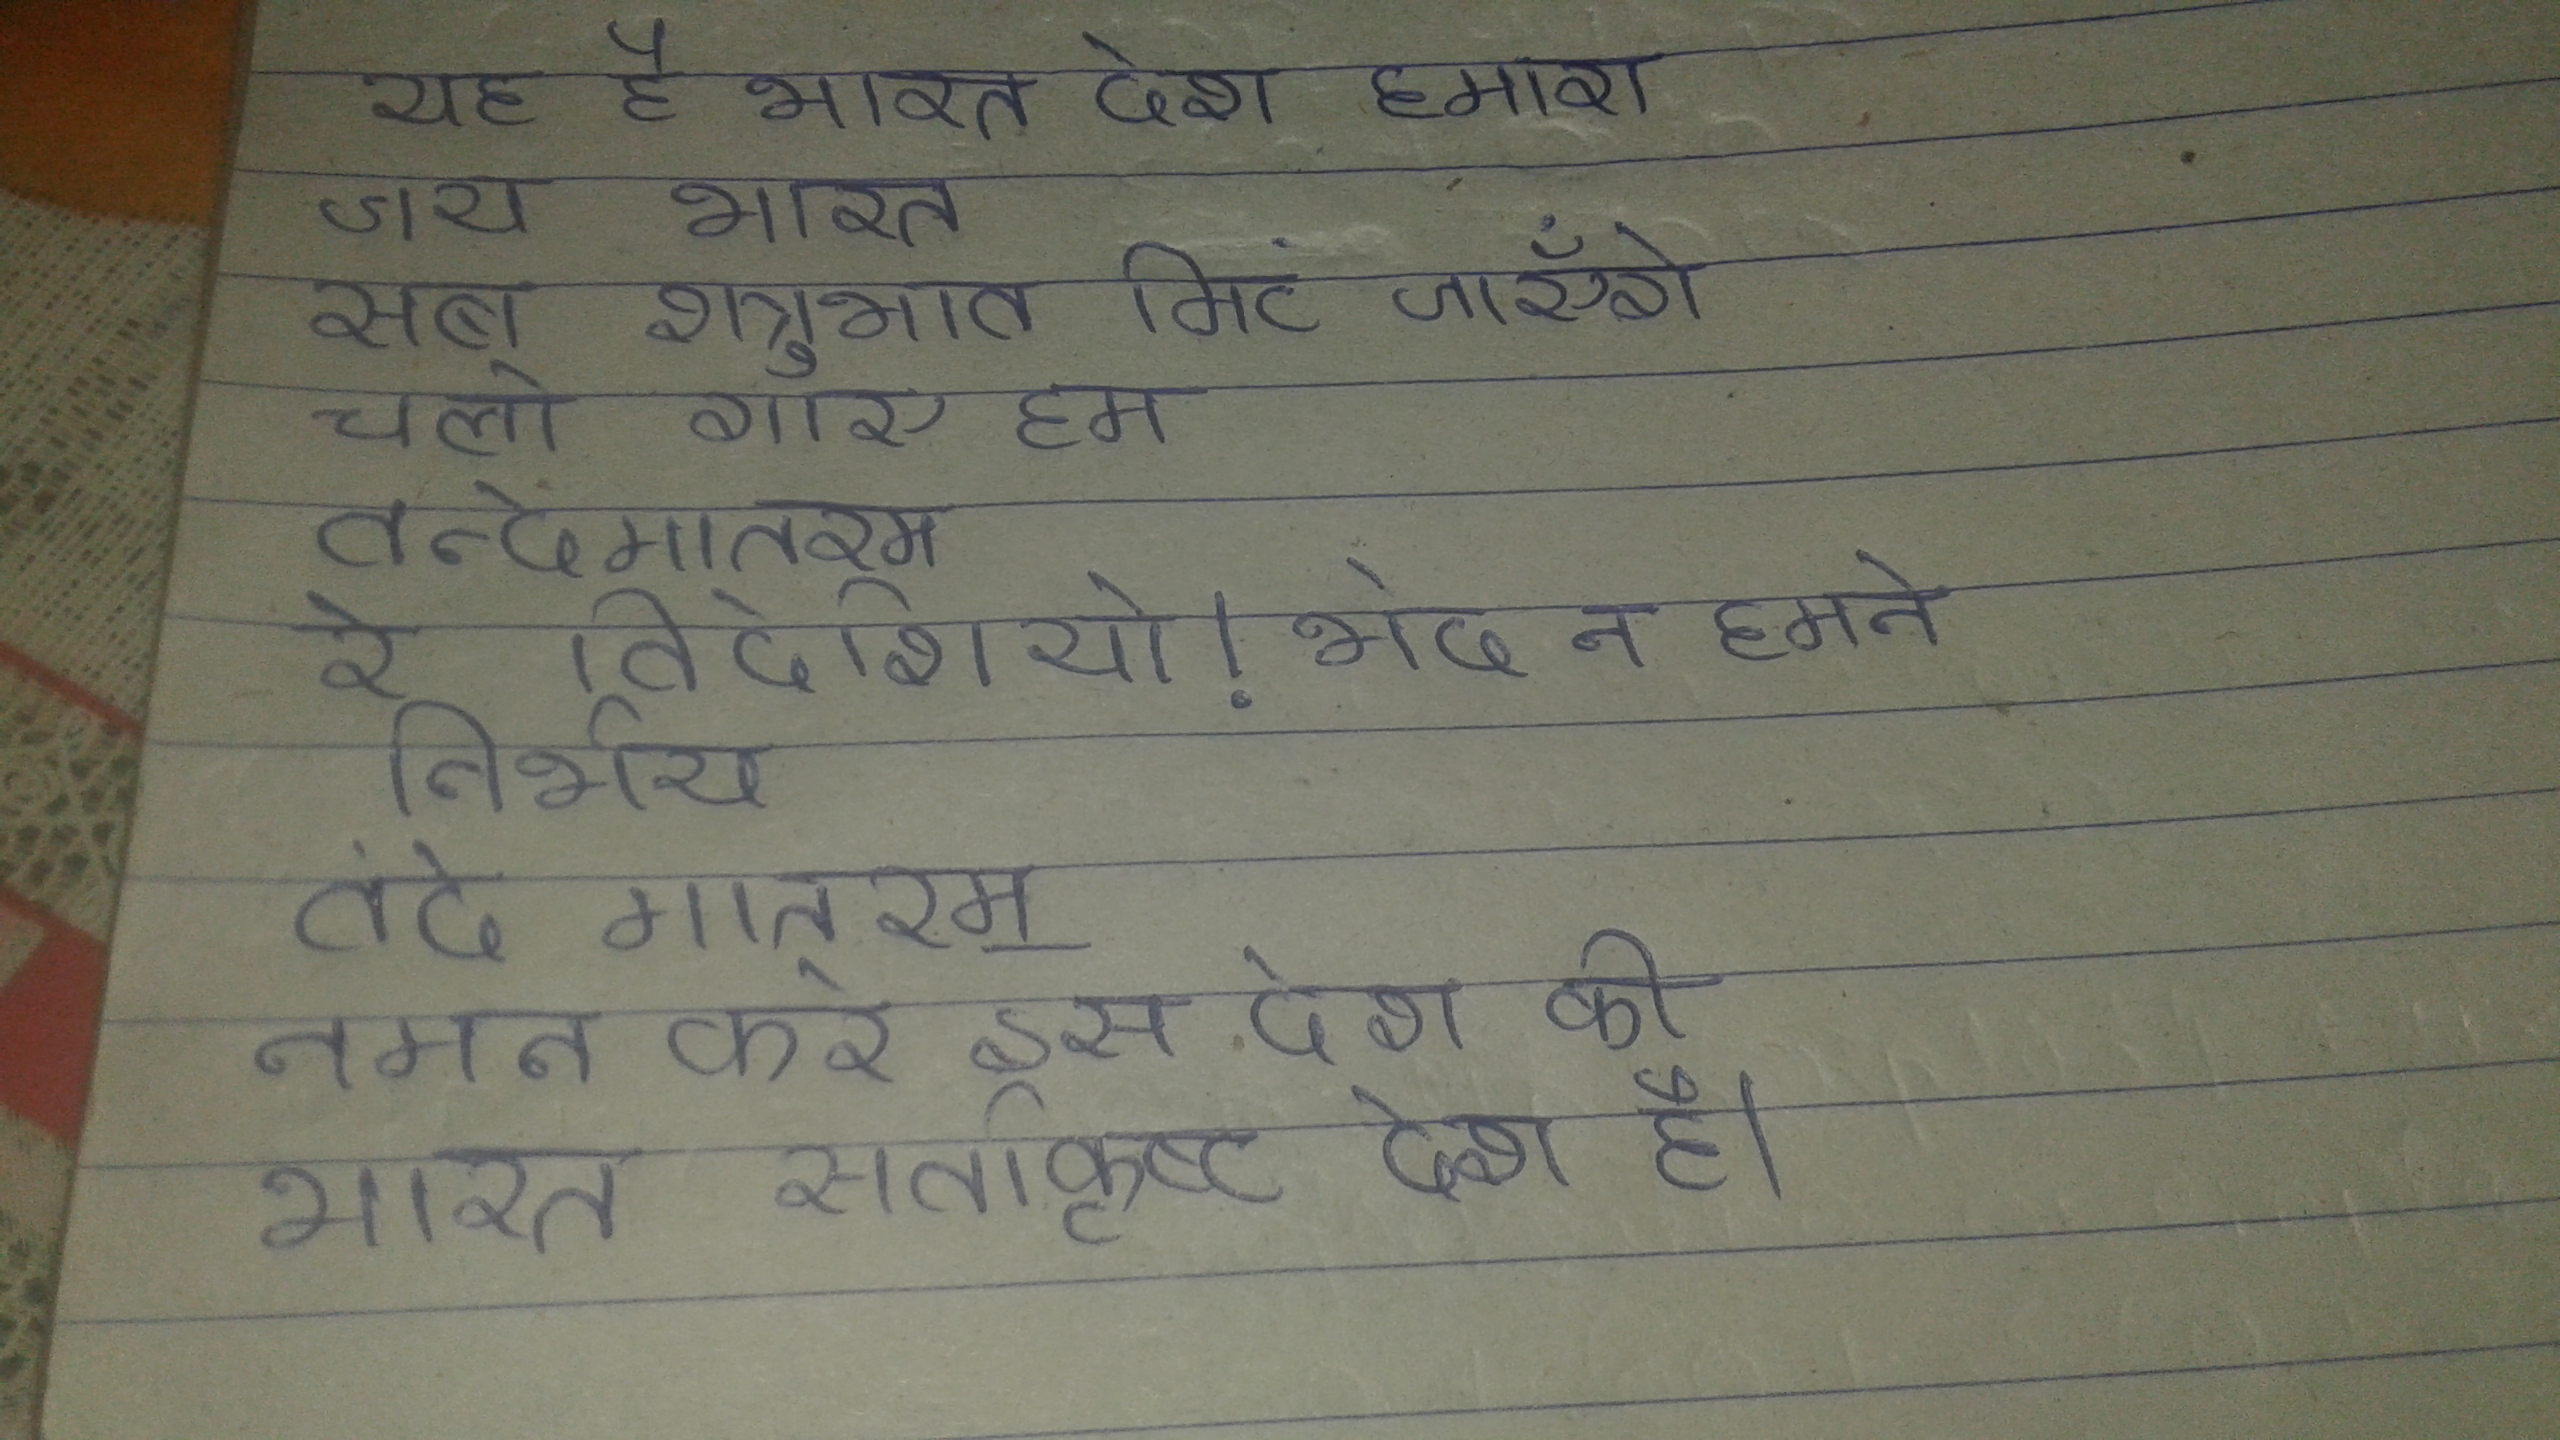 यह है भारत देश हमारा
जय भारत
सब शत्रुभाव मिट जाएँगे
चलो गाए हम
वन्देमातरम
रे विदेशियो! भेद न हमने
निर्भय
वंदे मातरम
नमन करे इस देश की
भारत सर्वोकृष्ट देश है।